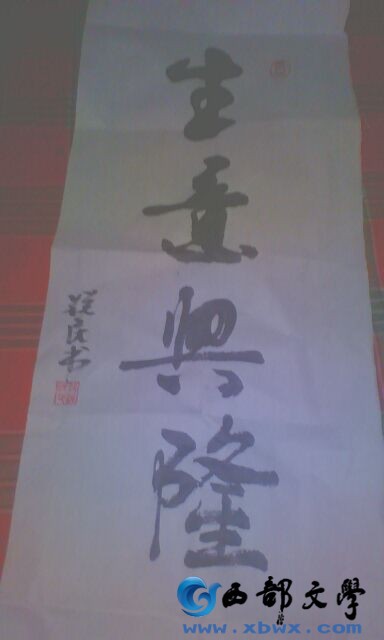 生意興隆
民书
西部文學
www.xbwx.com